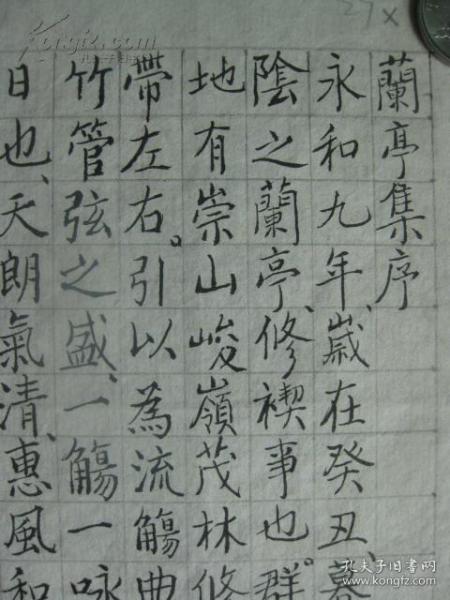 蘭亭集序
永和九年、歲在癸丑、暮
陰之蘭亭、修禊事也。群
地有崇山峻嶺茂林修
帶左右。引以為流觴曲
竹管弦之盛、一觴一咏
日也、天朗氣清、惠風和
27×
孔夫子旧书网